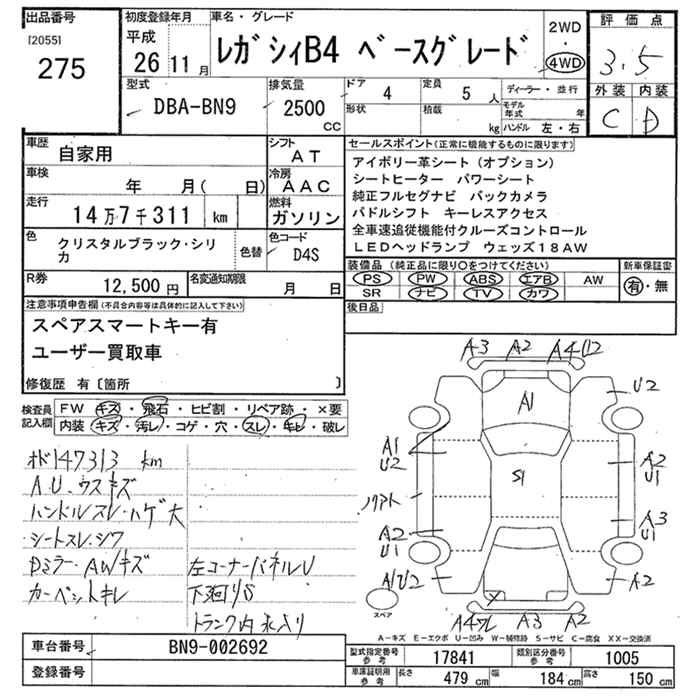 出品番号
[2055]
275
初度登録年月
平成
26 11 月
車名・グレード
レガシィB4 ベースグレード
2WD
・
4WD
評価点
3.5
外装 内装
C D
型式
DBA-BN9
排気量
2500
CC
ドア
4
定員
5 人
形状
積載
kg
ディーラー・並行
モデル年式 年
ハンドル 左・右
車歴
自家用
シフト
AT
車検
年 月( 日)
冷房
AAC
走行
14万7千311 km
燃料
ガソリン
色
クリスタルブラック・シリカ
色替
色コード
D4S
R券
12,500 円
名変通知期限
月 日
セールスポイント(正常に機能するものに限ります)
アイボリー革シート(オプション)
シートヒーター パワーシート
純正フルセグナビ バックカメラ
パドルシフト キーレスアクセス
全車速追従機能付クルーズコントロール
LEDヘッドランプ ウェッズ18AW
装備品(純正品に限り○をつけてください)
PS PW ABS エアB AW
SR ナビ TV カワ
新車保証書
有・無
後日品
注意事項申告欄(不具合内容等は具体的に記入して下さい)
スペアスマートキー有
ユーザー買取車
修復歴 有〔箇所 〕
検査員記入欄
FW キズ・飛石・ヒビ割・リペア跡・×要
内装 キズ・汚レ・コゲ・穴・スレ・キレ・破レ
オド147313 km
A.U.ウスキズ
ハンドルスレ・ハゲ大
シートスレ・シワ
Dミラー・AWキズ
カーペットキレ
左コーナーパネルU
下廻りS
トランク内水入り
A3 A2 A4U2
U2
A1
A1
U2
S1
A2
U1
A3
U1
A2
U1
A1U2
A2
スペア
A3 A2
A-キズ E-エクボ U-凹み W-補修跡 S-サビ C-腐食 XX-交換済
車台番号
BN9-002692
登録番号
型式指定番号
参考
17841
類別区分番号
参考
1005
車庫証明用
参考
長さ
479 cm
幅
184 cm
高さ
150 cm